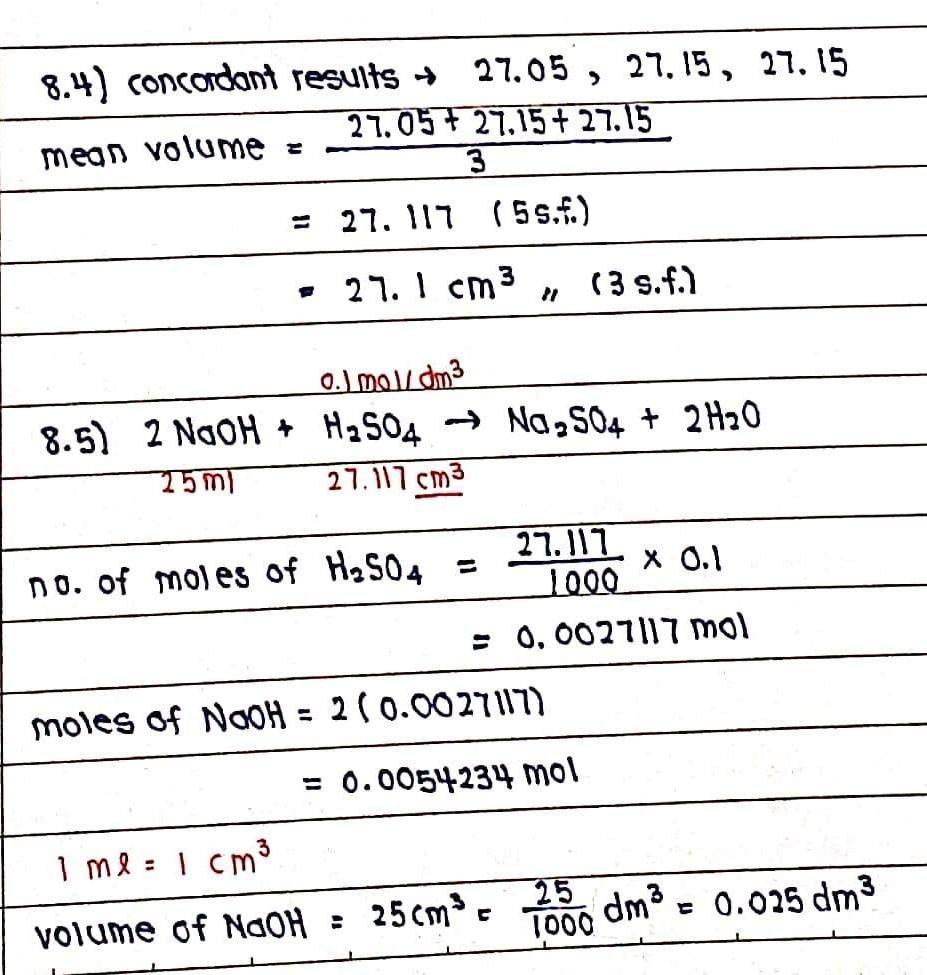 8.4) concordant results → 27.05 , 27.15 , 27.15
mean volume = 27.05 + 27.15 + 27.15 / 3
= 27.117 (5 s.f.)
= 27.1 cm³ ,, (3 s.f.)
0.1 mol/dm³
8.5) 2 NaOH + H₂SO₄ → Na₂SO₄ + 2H₂O
25ml 27.117 cm³
no. of moles of H₂SO₄ = 27.117 / 1000 × 0.1
= 0.0027117 mol
moles of NaOH = 2(0.0027117)
= 0.0054234 mol
1 ml = 1 cm³
volume of NaOH = 25cm³ = 25/1000 dm³ = 0.025 dm³